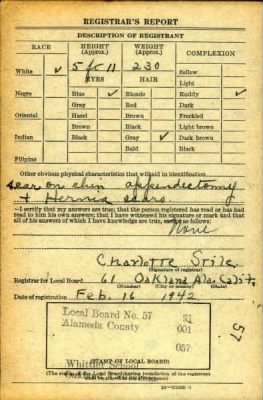 REGISTRAR'S REPORT
DESCRIPTION OF REGISTRANT
RACE HEIGHT (Approx.) WEIGHT (Approx.) COMPLEXION
White ✓ 5 ft 11 230 Sallow
EYES HAIR Light
Negro Blue ✓ Blonde Ruddy ✓
Gray Red Dark
Oriental Hazel Brown Freckled
Brown Black Light brown
Indian Black Gray ✓ Dark brown
Bald Black
Filipino
Other obvious physical characteristics that will aid in identification
scar on chin appendectomy
+ Hernia scars
—I certify that my answers are true; that the person registered has read or has had
read to him his own answers; that I have witnessed his signature or mark and that
all of his answers of which I have knowledge are true, except as follows:
None
Charlotte
(Signature of registrar)
Registrar for Local Board 61 Oakland Ala. Calif.
(Number) (City or county) (State)
Date of registration Feb. 16 1942
Local Board No. 57 21
Alameda County 001
057
Whittier School
(STAMP OF LOCAL BOARD)
57